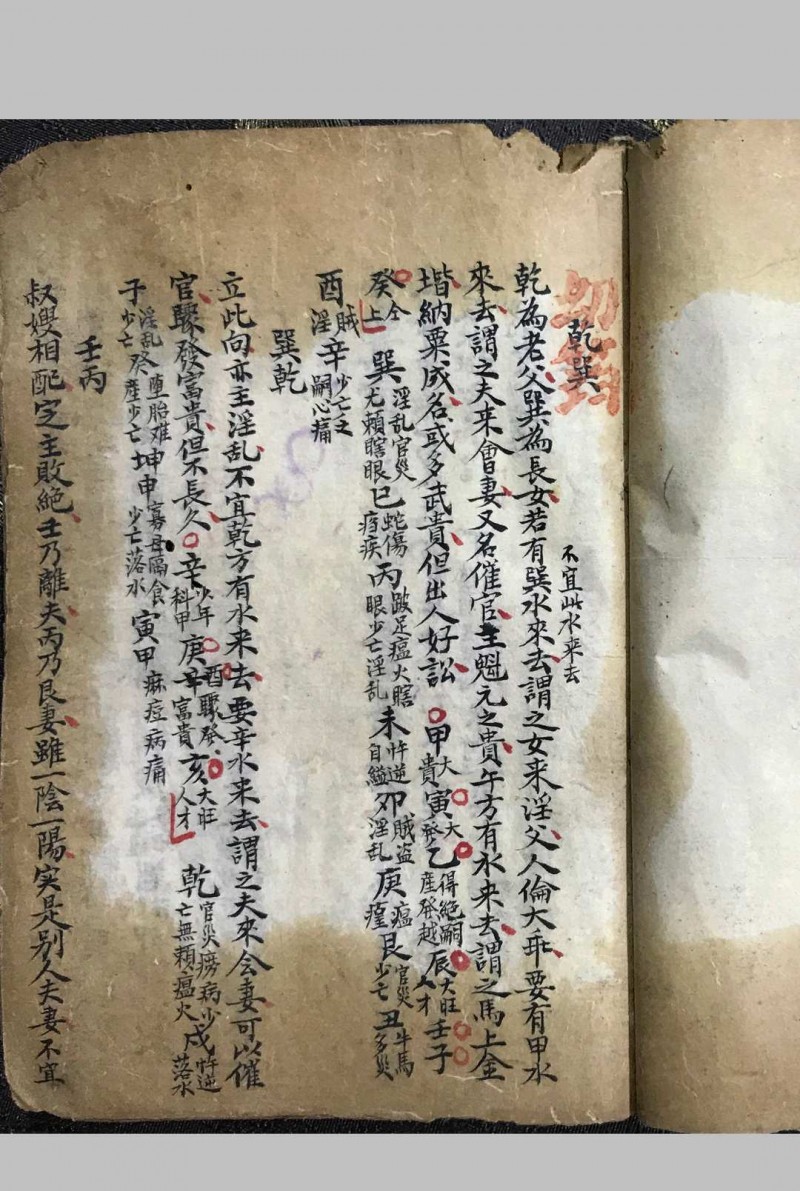 乾巽
不宜此水来去
乾為老父巽為長女若有巽水來去謂之女来淫父人倫大乖要有甲水
來去謂之夫来會妻又名催官主魁元之貴午方有水来去謂之馬上金
堦納粟成名或多武貴但出人好訟 甲大貴 寅大發 乙得絶嗣産發越 辰大旺人才 壬子
癸全上 巽淫乱官災尤頼瞎眼 巳蛇傷痔疾 丙跛足瘟火瞎眼少亡淫乱 未忤逆自縊 卯賊盗淫乱 庚瘟 艮官災少亡 丑牛馬多災
酉賊淫 辛少亡乏嗣心痛
巽乾
立此向亦主淫乱不宜乾方有水来去要辛水来去謂之夫來会妻可以催
官驟發富貴但不長久 辛少年科甲 庚酉驟發辛富貴 亥大旺人才 乾官災癆病少亡無頼瘟火 戌忤逆落水
子淫乱少亡 癸墮胎难産少亡 坤申寡母隔食少亡落水 寅甲麻痘病痛
壬丙
叔嫂相配定主敗絶壬乃離夫丙乃艮妻雖一陰一陽实是别人夫妻不宜